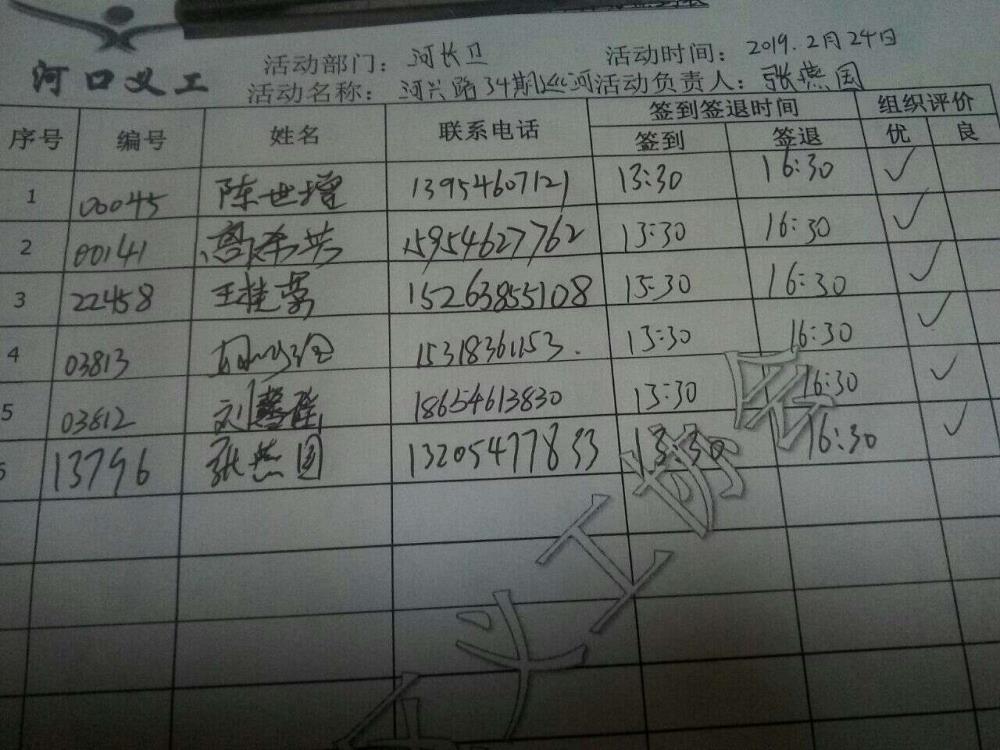 河口义工
活动部门：河长卫 活动时间：2019.2月24日
活动名称：河兴路34期巡河 活动负责人：张燕国
序号 编号 姓名 联系电话 签到签退时间 组织评价
签到 签退 优 良
1 00045 陈世增 13954607121 13:30 16:30 ✓
2 00141 高希芳 15954627762 13:30 16:30 ✓
3 22458 王桂荣 15263855108 15:30 16:30 ✓
4 03813 15318361153. 13:30 16:30 ✓
5 03812 刘馨 18654613830 13:30 16:30 ✓
6 13796 张燕国 13205477833 13:30 16:30 ✓